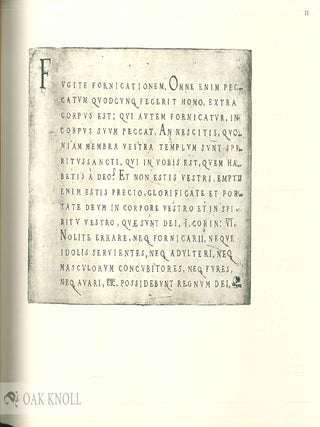 11
FVGITE FORNICATIONEM, OMNE ENIM PEC-
CATVM QVODCVNQ FEGERIT HOMO, EXTRA
CORPVS EST; QVI AVTEM FORNICATVR, IN
CORPVS SVVM PECCAT, AN NESCITIS, QVO-
NIAM MEMBRA VESTRA TEMPLVM SVNT SPI-
RITVSSANCTI, QVI IN VOBIS EST, QVEM HÆ-
BETIS A DEO? ET NON ESTIS VESTRI, EMPTI
ENIM ESTIS PRECIO, GLORIFICATE ET POR-
TATE DEVM IN CORPORE VESTRO ET IN SPI-
RITV VESTRO, QVÆ SVNT DEI, I. CORIN: VI.
NOLITE ERRARE, NEQ FORNICARII, NEQVE
IDOLIS SERVIENTES, NEQ ADVLTERI, NEQ
MASCVLORVM CONCVBITORES, NEQ FVRES,
NEQ AVARI, EtC. POSSIDEBVNT REGNVM DEI,
OAK KNOLL